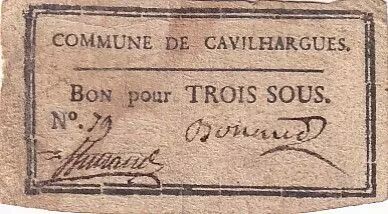 COMMUNE DE CAVILHARGUES.
BON pour TROIS SOUS.
N°. 79